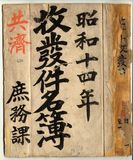 昭和十四年
收發件名簿
共濟
庶務課